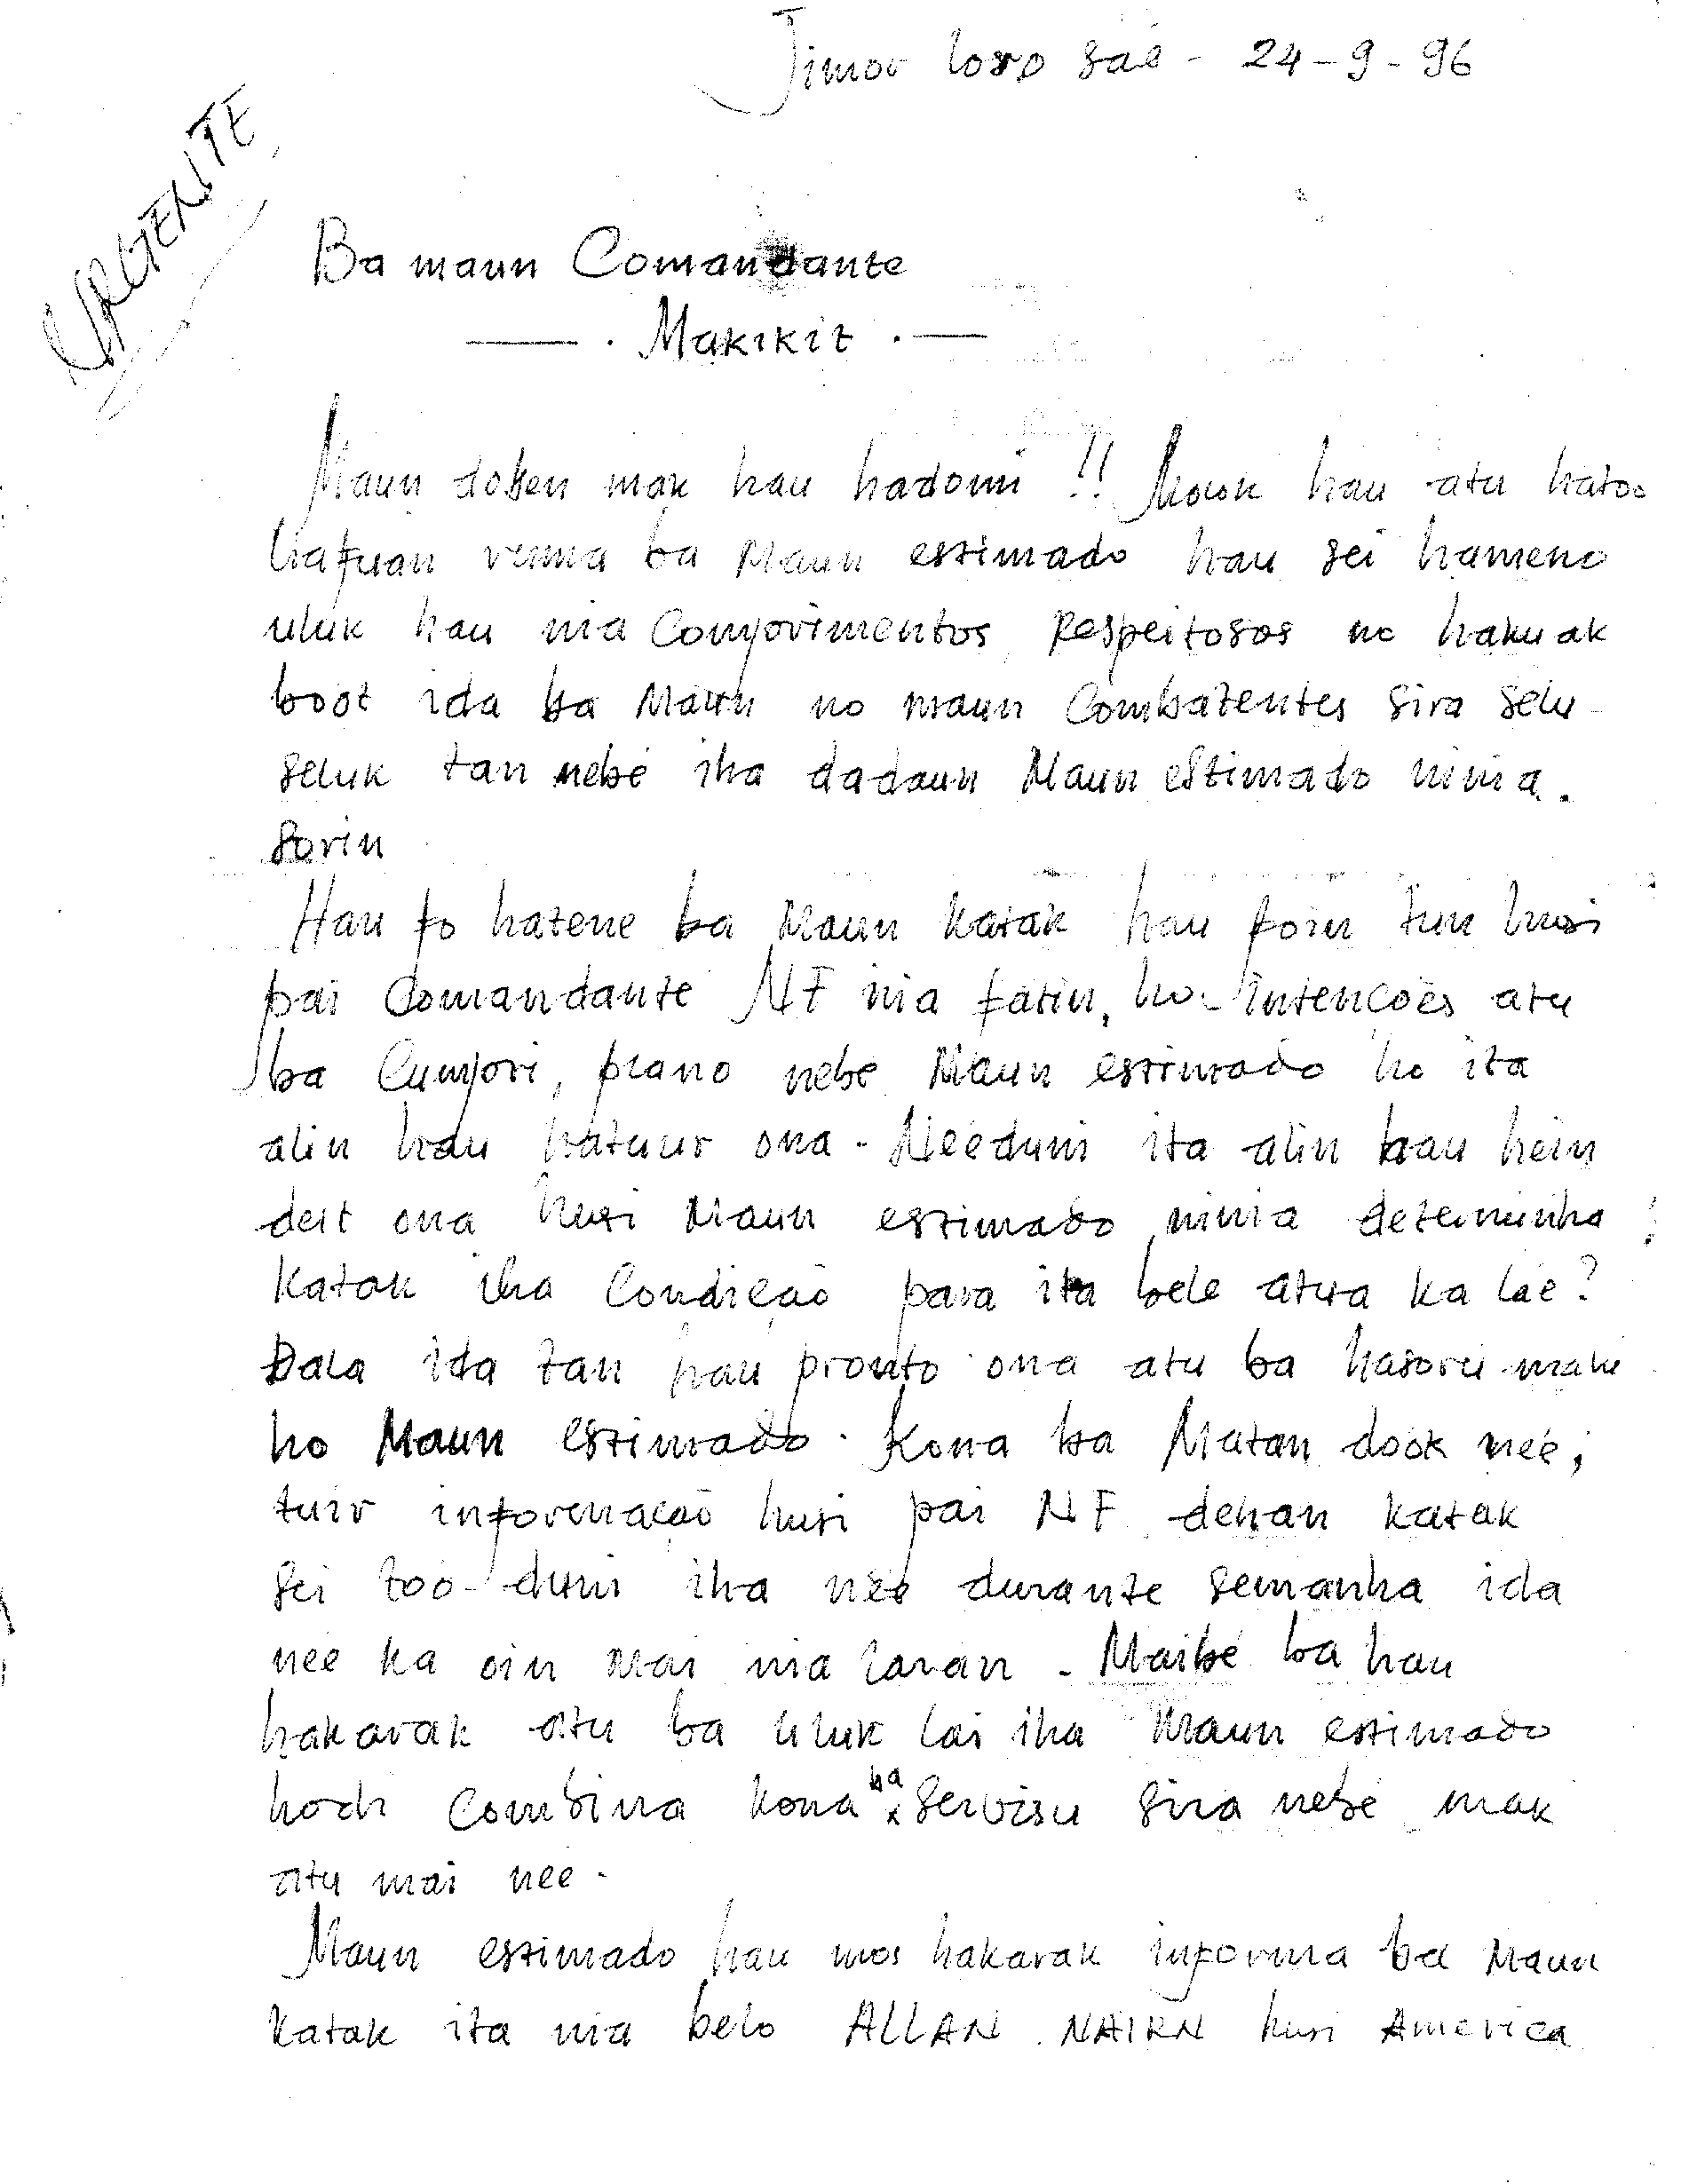 Timor loro saé - 24-9-96
URGENTE
Ba maun Comandante
Makikit
Maun doben mak hau hadomi !! Molok hau atu hatoo
liafuan ruma ba Maun estimado hau sei hameno
uluk hau nia Comprimentos Respeitosos no hakuak
boot ida ba Maun no maun Combatentes sira selu-
seluk tan nebé iha dadaun Maun estimado ninia.
sorin
Hau fo hatene ba Maun katak hau foin tun husi
pai Comandante NF nia fatin, ho intencoẽs atu
ba Cumpri, plano nebé Maun estimado ho ita
alin hau hatuur ona. Néeduni ita alin hau hein
deit ona husi Maun estimado ninia determinha
katak iha Condicão para ita bele atua ka laé?
Dala ida tan hau pronto ona atu ba hasoru malu
ho Maun estimado. Kona ba Matan dóok neé;
tuir informacão husi pai NF dehan katak
sei tóo duni iha neé durante semanha ida
neé ka oin mai nia laran. Maibé ba hau
hakarak atu ba uluk lai iha Maun estimado
hodi Combina kona ba servisu sira nebé mak
atu mai neé.
Maun estimado hau mos hakarak informa ba Maun
katak ita nia belo ALLAN NAIRN husi America